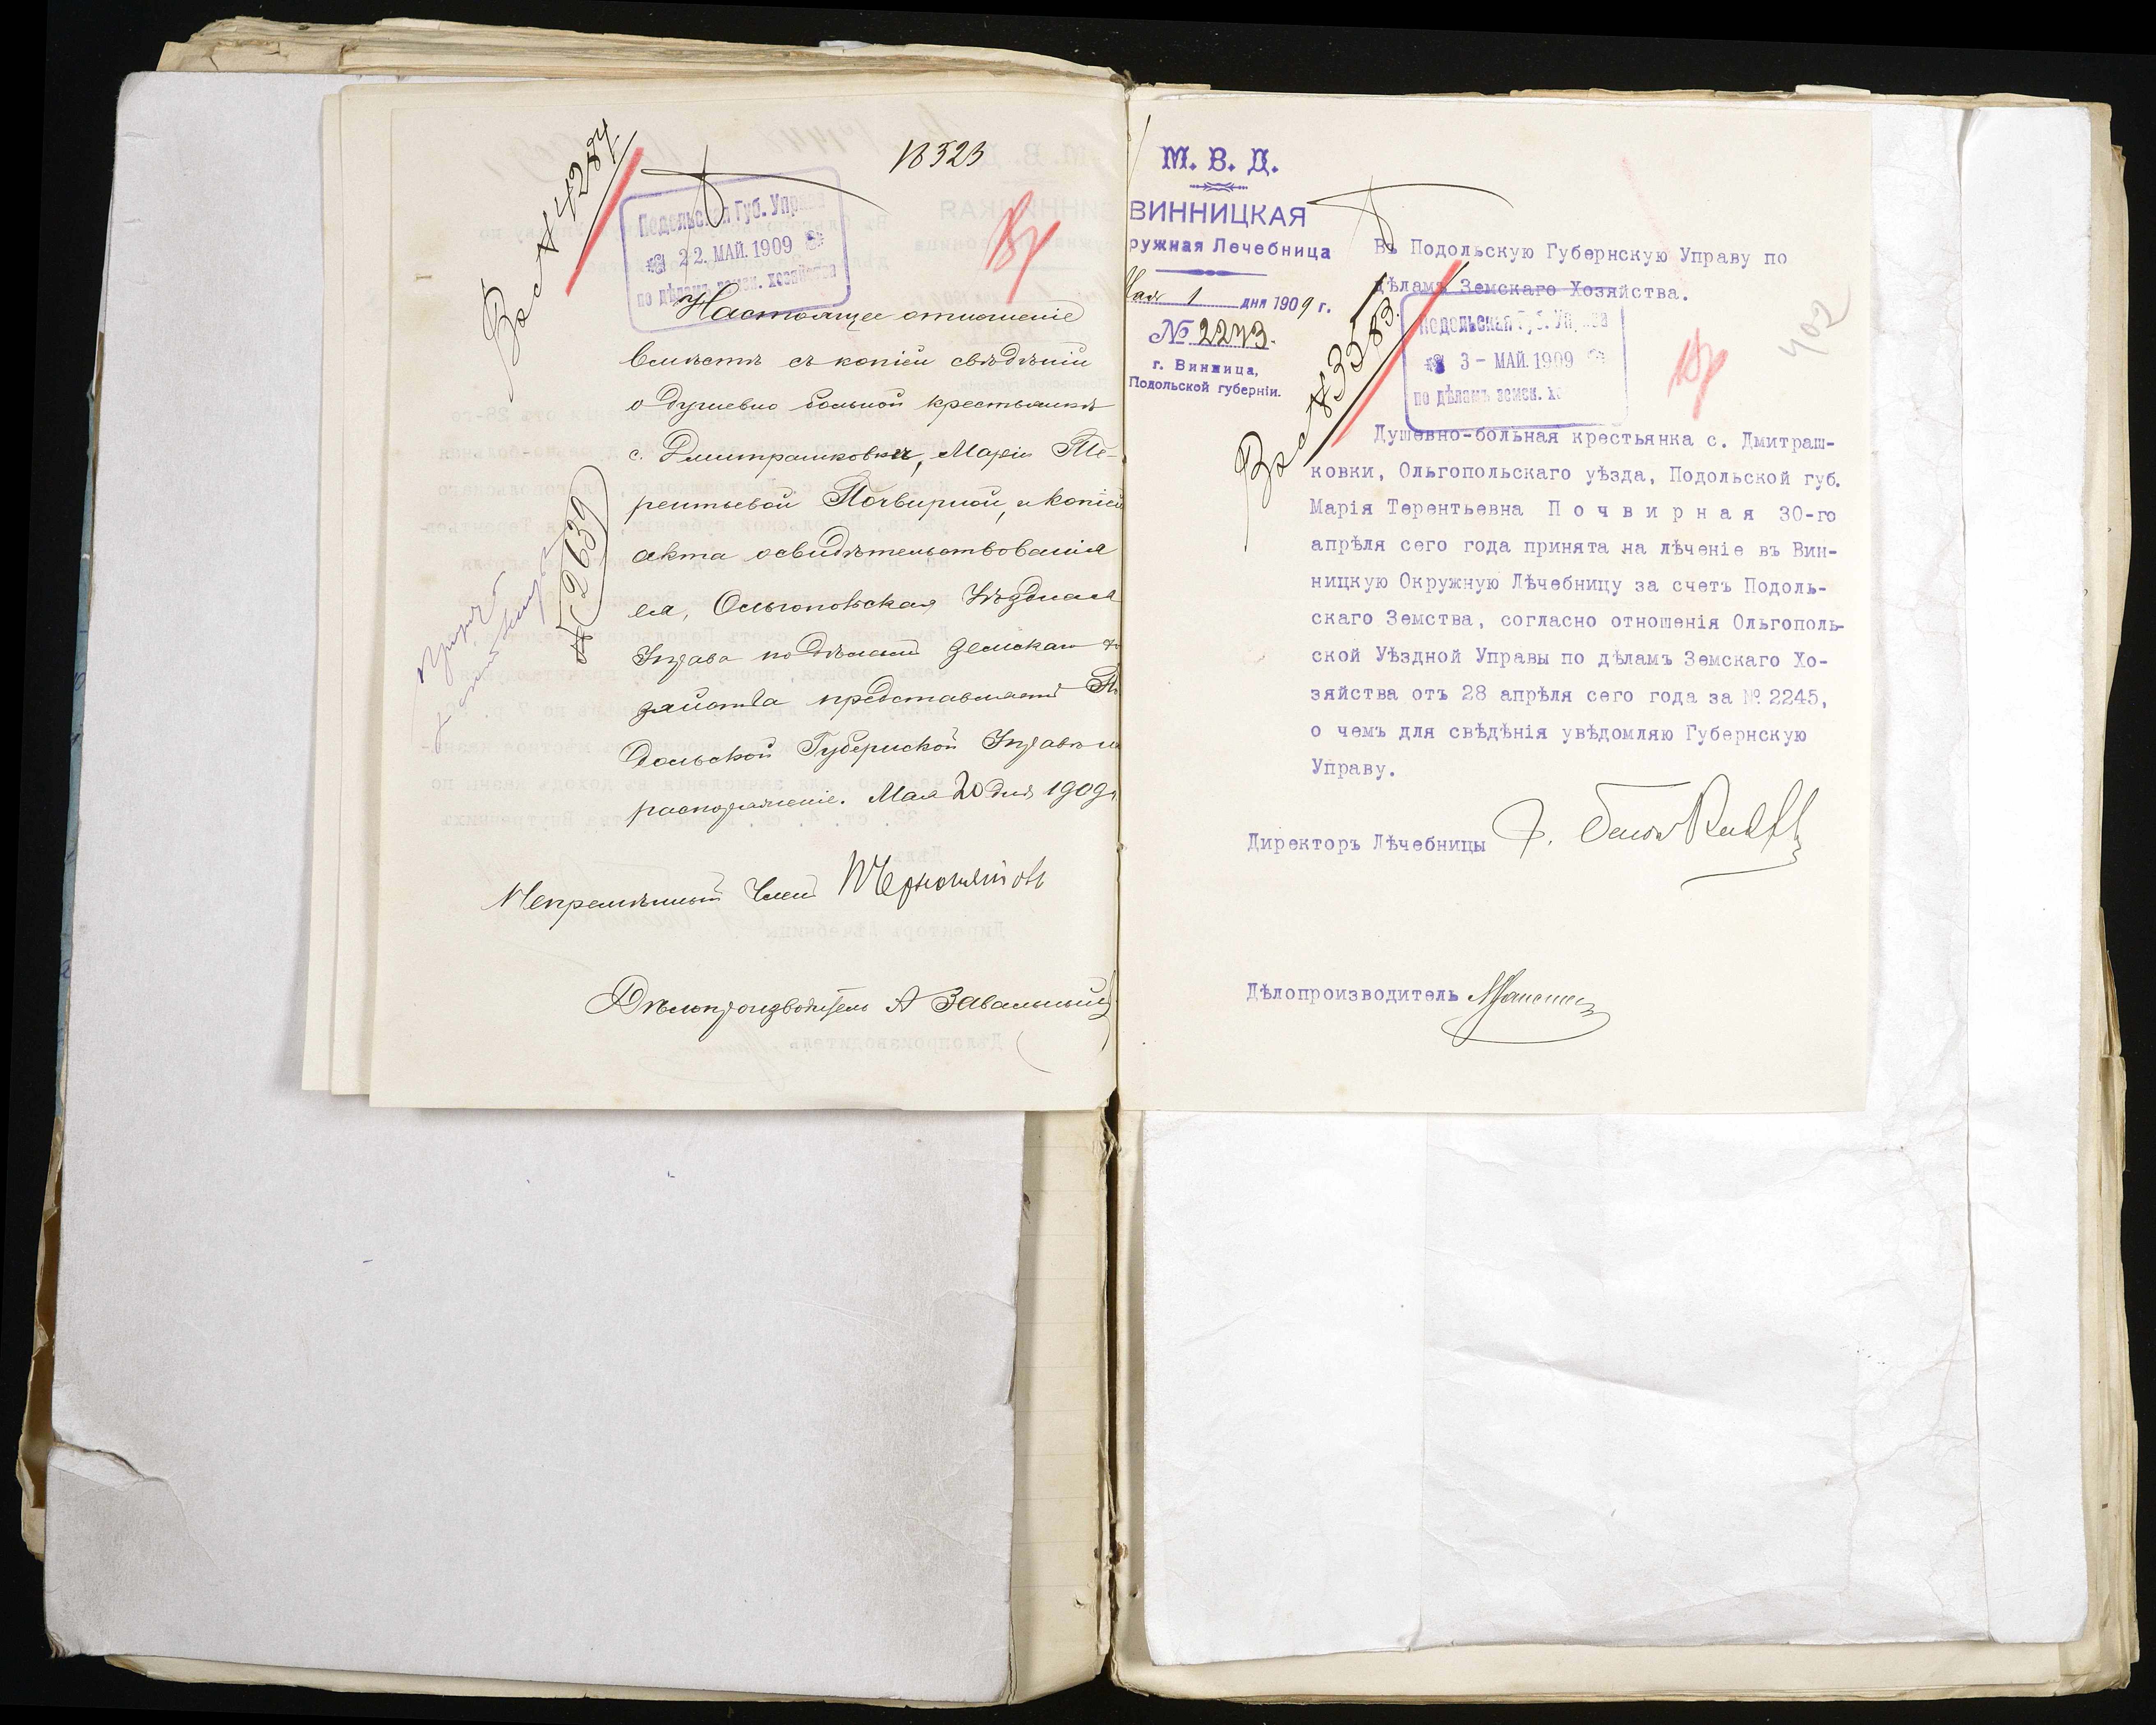 Вх № 4284
18523
Подольская Губ. Управа
22. МАЙ. 1909
по дѣламъ земск. хозяйства
Настоящее отношеніе
вмѣстѣ съ копіей свѣдѣній
о душевно больной крестьянкѣ
с. Дмитрашковки, Маріи Те-
рентьевой Почвирной, и копіей
акта освидѣтельствованія
ея, Ольгопольская Уѣздная
Управа по дѣламъ Земскаго Хо
зяйства представляетъ По
дольской Губернской Управѣ на
распоряженіе. Мая 20 дня 1909 г.
№ 2639
Непремѣнный Членъ
Дѣлопроизводитель А Завальный
М. В. Д.
ВИННИЦКАЯ
ружная Лечебница
Мая 1 дня 1909 г.
№ 2273.
г. Винница,
Подольской губерніи.
Въ Подольскую Губернскую Управу по
дѣламъ Земскаго Хозяйства.
Вх № 3583.
Подольская Губ. Управа
3 - МАЙ. 1909
по дѣламъ земск. хо
402
Душевно-больная крестьянка с. Дмитраш-
ковки, Ольгопольскаго уѣзда, Подольской губ.
Марія Терентьевна П о ч в и р н а я 30-го
апрѣля сего года принята на лѣченіе въ Вин-
ницкую Окружную Лѣчебницу за счетъ Подоль-
скаго Земства, согласно отношенія Ольгополь-
ской Уѣздной Управы по дѣламъ Земскаго Хо-
зяйства отъ 28 апрѣля сего года за № 2245,
о чемъ для свѣдѣнія увѣдомляю Губернскую
Управу.
Директоръ Лѣчебницы
Дѣлопроизводитель